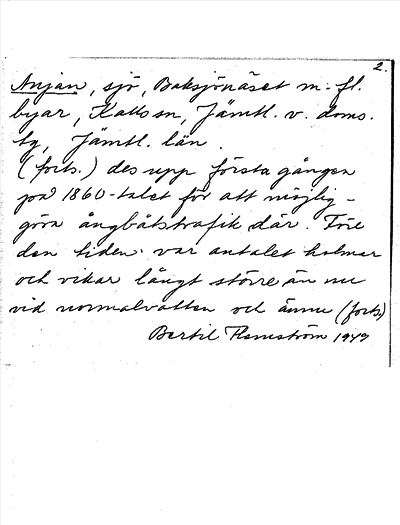 2.
Anjan, sjö, Baksjönäset m. fl.
byar, Kalls sn, Jämtl. v. doms.
tg, Jämtl. län.
(forts.) des upp första gången
på 1860-talet för att möjlig-
göra ångbåtstrafik där. Före
den tiden var antalet holmar
och vikar långt större än nu
vid normalvatten och ännu (forts.)
Bertil Flemström 1943